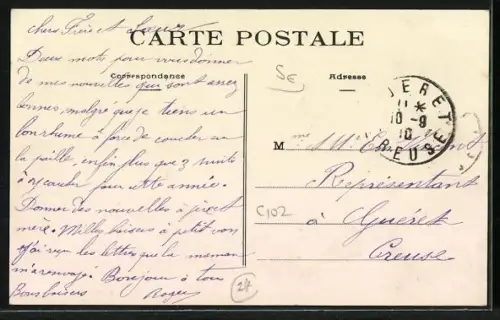 Chers Frère et Sœur
CARTE POSTALE
Deux mots pour vous donner
Correspondance
de mes nouvelles qui sont assez
bonnes, malgré que je tiens un
bon rhume à force de coucher sur
la paille, enfin plus que 3 nuits
à y coucher pour cette année.
Donner des nouvelles à père et
mère. Milles baisers à petit
J'ai reçu les lettres que la maman
m'a renvoyé. Bonjour à tous
Bons baisers Roger
SE
Adresse
GUERET
11 *
10 - 9
10
CREUSE
M
Représentant
C102
à Guéret
Creuse
28